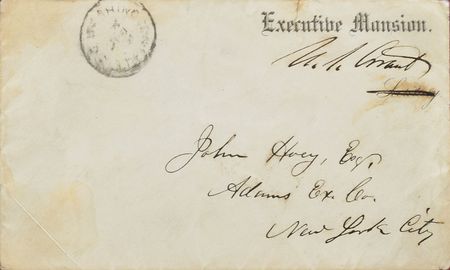 Executive Mansion.
U. S. Grant
John Hoey, Esq.
Adams Ex. Co.
New York City